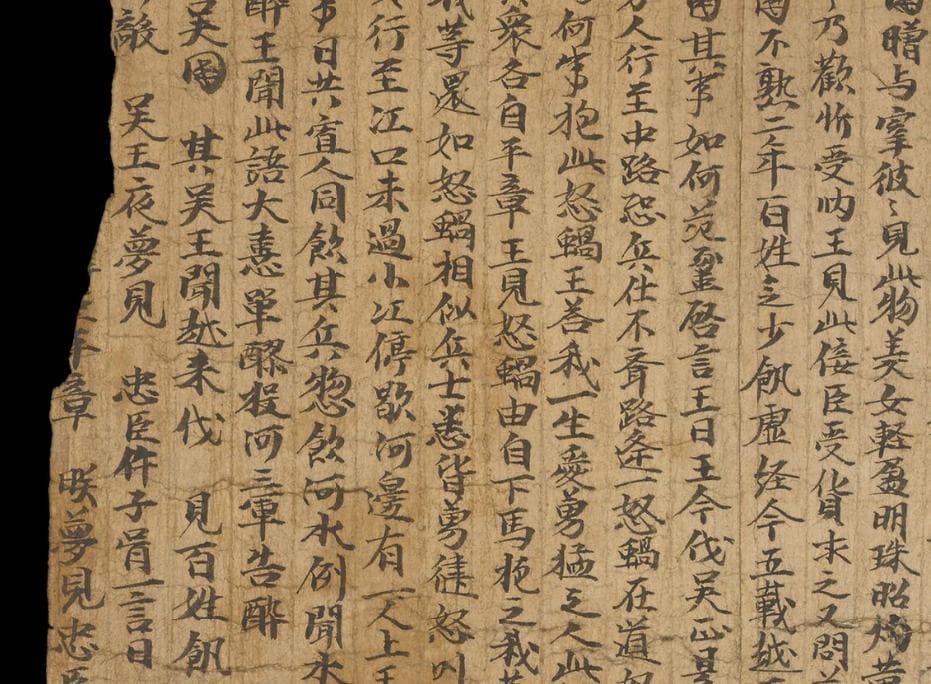 國贈与宰彼〻見此物美女輕盈明珠昭灼黃
乃歡忻受納王見此佞臣受貨求之又問
國不熟二年百姓乏少飢虛經今五載越
國其事如何范蠡啓言王曰王今伐吳正是
人行至中路恐兵仕不齊路逢一怒蝸在道
何事抱此怒蝸王荅我一生愛勇猛之人此
衆各自平章王見怒蝸由自下馬抱之我等
我等還如怒蝸相似兵士悉皆勇健怒叫
行至江口未過小江停歇河邊有一人上王
日共寡人同飲其兵惣飲河水例聞水
醉王聞此語大憙單醪投河三軍告醉
吳國 其吳王聞越來伐 見百姓飢
敵 吳王夜夢見 忠臣伍子胥一言曰
章 朕夢見忠臣